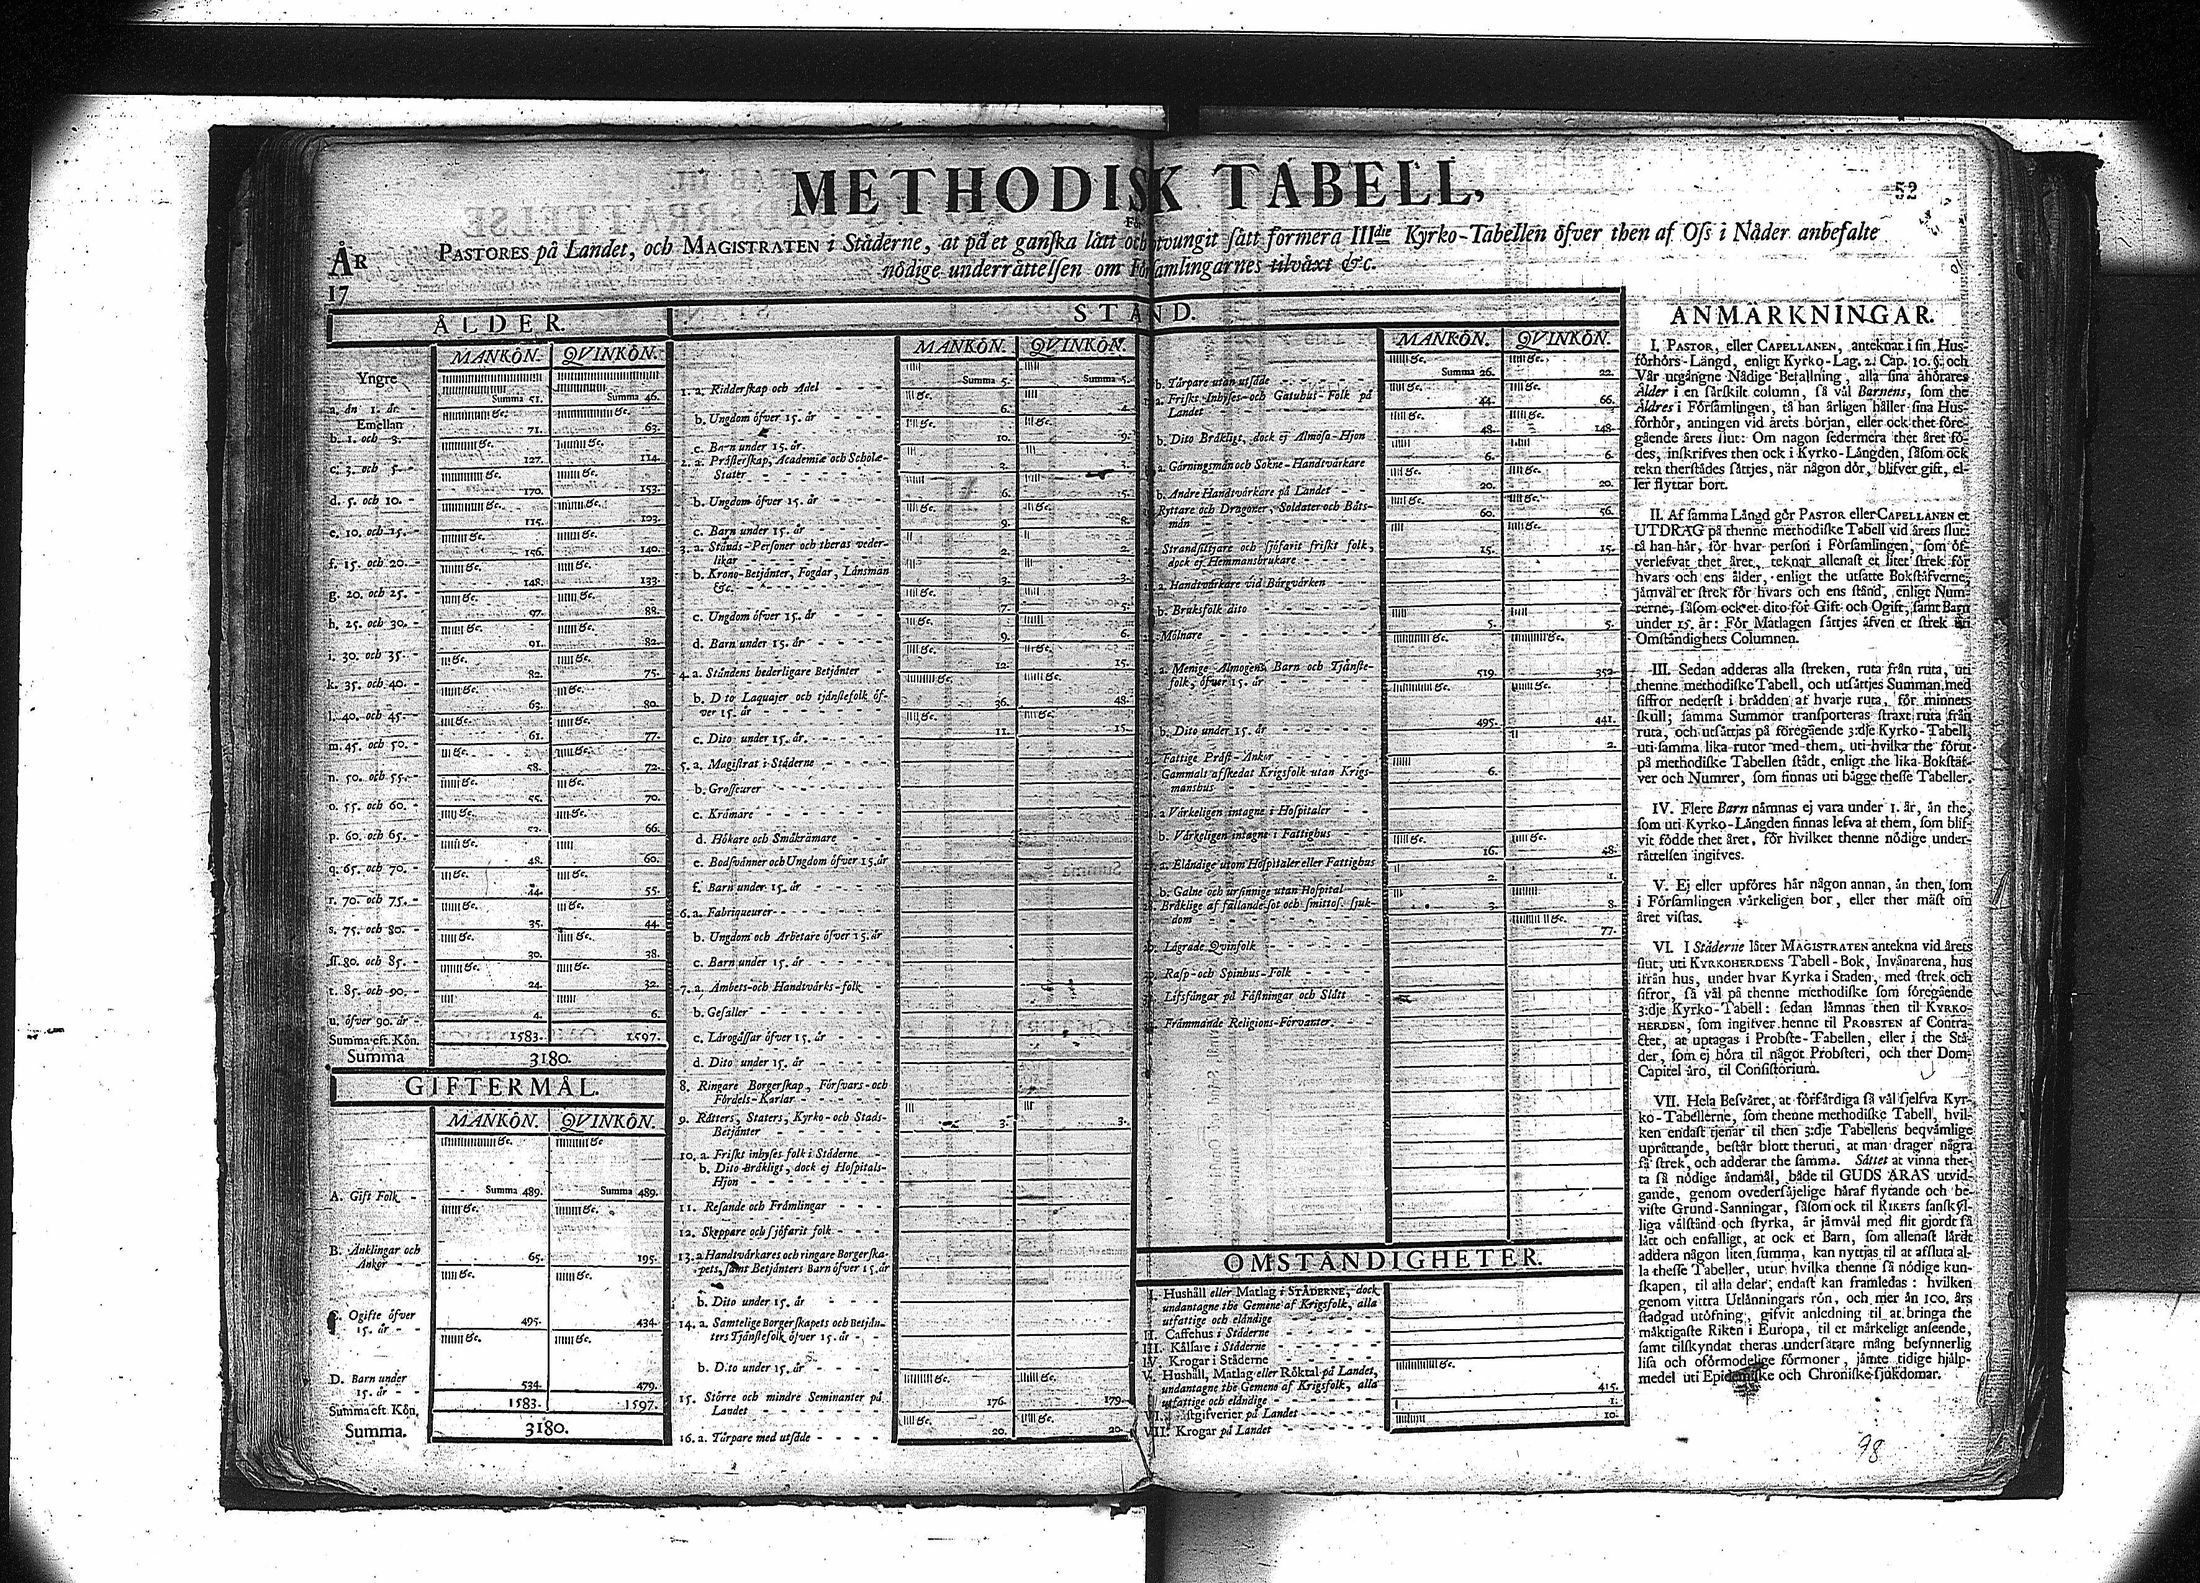 METHODISK TABELL,
52
PASTORES på Landet, och MAGISTRATEN i Städerne, at på et ganska lätt och otvungit sätt formera IIIdie Kyrko-Tabellen öfver then af Oss i Nåder anbefalte
nödige underrättelsen om Församlingarnes tilväxt &c.
ÅR
17
ÅLDER.
MANKÖN. QVINKÖN.
Yngre
a. än 1. år. Summa 51. Summa 46.
Emellan
b. 1. och 3. 71. 63.
c. 3. och 5. 127. 114.
d. 5. och 10. 170. 153.
e. 10. och 15. 115. 103.
f. 15. och 20. 156. 140.
g. 20. och 25. 148. 133.
h. 25. och 30. 97. 88.
i. 30. och 35. 91. 82.
k. 35. och 40. 82. 75.
l. 40. och 45. 63. 80.
m. 45. och 50. 61. 77.
n. 50. och 55. 58. 72.
o. 55. och 60. 55. 70.
p. 60. och 65. 52. 66.
q. 65. och 70. 48. 60.
r. 70. och 75. 44. 55.
s. 75. och 80. 35. 44.
ſſ. 80. och 85. 30. 38.
t. 85. och 90. 24. 32.
u. öfver 90. år 4. 6.
Summa eft. Kön. 1583. 1597.
Summa 3180.
GIFTERMÅL.
MANKÖN. QVINKÖN.
A. Gift Folk Summa 489. Summa 489.
B. Änklingar och
Änkor 65. 195.
C. Ogifte öfver
15. år 495. 434.
D. Barn under
15. år 534. 479.
Summa eft. Kön. 1583. 1597.
Summa. 3180.
STÅND.
MANKÖN. QVINKÖN.
1. a. Ridderskap och Adel Summa 5. Summa 5.
b. Ungdom öfver 15. år 6. 4.
c. Barn under 15. år 10. 9.
2. a. Prästerskap, Academiæ och Scholæ-
Stater 3. 3.
b. Ungdom öfver 15. år 6. 15.
c. Barn under 15. år 9. 8.
3. a. Stånds-Personer och theras veder-
likar 2. 2.
b. Krono-Betjänter, Fogdar, Länsmän
&c. 3. 3.
c. Ungdom öfver 15. år 7. 5.
d. Barn under 15. år 9. 6.
4. a. Ståndens hederligare Betjänter 12. 15.
b. Dito Laquajer och tjänstefolk öf-
ver 15. år 36. 48.
c. Dito under 15. år. 11. 15.
5. a. Magistrat i Städerne
b. Grosseurer
c. Krämare
d. Hökare och Småkrämare
e. Bodsvänner och Ungdom öfver 15. år
f. Barn under 15. år
6. a. Fabriqueurer
b. Ungdom och Arbetare öfver 15. år
c. Barn under 15. år
7. a. Ämbets- och Handtvärks-folk
b. Gesäller
c. Lärogåssar öfver 15. år
d. Dito under 15. år.
8. Ringare Borgerskap, Försvars- och
Fördels-Karlar
9. Rätters, Staters, Kyrko- och Stads-
Betjänter 3. 3.
10. a. Friskt inhyses folk i Städerne
b. Dito Bräkligt, dock ej Hospitals-
Hjon
11. Resande och Främlingar
12. Skeppare och sjöfarit folk
13. a Handtvärkares och ringare Borgerska-
pets, samt Betjänters Barn öfver 15. år
b. Dito under 15. år
14. a. Samtelige Borgerskapets och Betjän-
ters Tjänstefolk öfver 15. år
b. Dito under 15. år
15. Större och mindre Seminanter på
Landet 176. 179.
16. a. Tärpare med utsäde 20. 20.
MANKÖN. QVINKÖN.
b. Tärpare utan utsäde Summa 26. 22.
a. Friskt Inhyses- och Gatuhus-Folk på
Landet 44. 66.
b. Dito Bräkligt, dock ej Almosa-Hjon 48. 148.
a. Gärningsmän och Sokne-Handtvärkare 6. 6.
b. Andre Handtvärkare på Landet 20. 20.
Ryttare och Dragoner, Soldater och Båts-
män 60. 56.
Strandsittjare och sjöfarit friskt folk,
dock ej Hemmansbrukare 15. 15.
a. Handtvärkare vid Bärgvärken
b. Bruksfolk dito
Mölnare 5. 5.
a. Menige Almogens Barn och Tjänste-
folk, öfver 15. år 519. 352.
b. Dito under 15. år 495. 441.
Fattige Präst-Änkor 2.
Gammalt afskedat Krigsfolk utan Krigs-
manshus 6.
a Värkeligen intagne i Hospitaler
b. Värkeligen intagne i Fattighus
a. Eländige utom Hospitaler eller Fattighus 16. 48.
b. Galne och ursinnige utan Hospital 2. 1.
Bräklige af fallande sot och smittos. sjuk-
dom 3. 8.
Lägrade Qvinfolk 77.
Rasp- och Spinhus-Folk
Lifsfångar på Fästningar och Slått
Främmande Religions-Förvanter.
OMSTÄNDIGHETER.
I. Hushåll eller Matlag i STÄDERNE, dock
undantagne the Gemene af Krigsfolk, alla
utfattige och eländige
II. Caffehus i Städerne
III. Källare i Städerne
IV. Krogar i Städerne
V. Hushåll, Matlag eller Röktal på Landet,
undantagne the Gemene af Krigsfolk, alla
utfattige och eländige 415.
VI. Gästgifverier på Landet 1.
VII. Krogar på Landet 10.
ANMÄRKNINGAR.
I. PASTOR, eller CAPELLANEN, anteknar i sin Hus-
förhörs-Längd, enligt Kyrko-Lag. 2. Cap. 10. §. och
Vår utgångne Nådige Befallning, alla sina åhörares
Ålder i en särskilt column, så väl Barnens, som the
Äldres i Församlingen, tå han årligen håller sina Hus-
förhör, antingen vid årets början, eller ock thet före-
gående årets slut: Om någon sedermera thet året fö-
des, inskrifves then ock i Kyrko-Längden, såsom ock
tekn therstädes sättjes, när någon dör, blifver gift, el-
ler flyttar bort.
II. Af samma Längd gör PASTOR eller CAPELLANEN et
UTDRAG på thenne methodiske Tabell vid årets slut:
tå han här, för hvar person i Församlingen, som öf-
verlefvat thet året, teknar allenast et litet strek för
hvars och ens ålder, enligt the utsatte Bokstäfverne,
jämväl et strek för hvars och ens stånd, enligt Num-
rerne, såsom ock et dito för Gift och Ogift, samt Barn
under 15. år: För Matlagen sättjes äfven et strek uti
Omständighets Columnen.
III. Sedan adderas alla streken, ruta från ruta, uti
thenne methodiske Tabell, och utsättjes Summan med
siffror nederst i brädden af hvarje ruta, för minnets
skull; samma Summor transporteras straxt ruta från
ruta, och utsättjas på föregående 3:dje Kyrko-Tabell,
uti samma lika rutor med them, uti hvilka the förut
på methodiske Tabellen stådt, enligt the lika Bokstäf-
ver och Numrer, som finnas uti bägge thesse Tabeller.
IV. Flere Barn nämnas ej vara under 1. år, än the,
som uti Kyrko-Längden finnas lefva at them, som blif-
vit födde thet året, för hvilket thenne nödige under-
rättelsen ingifves.
V. Ej eller upföres här någon annan, än then, som
i Församlingen värkeligen bor, eller ther mäst om
året vistas.
VI. I Städerne låter MAGISTRATEN antekna vid årets
slut, uti KYRKOHERDENS Tabell-Bok, Invånarena, hus
ifrån hus, under hvar Kyrka i Staden, med strek och
sifror, så väl på thenne methodiske som föregående
3:dje Kyrko-Tabell: sedan lämnas then til KYRKO-
HERDEN, som ingifver henne til PROBSTEN af Contra-
ctet, at uptagas i Probste-Tabellen, eller i the Stä-
der, som ej höra til något Probsteri, och ther Dom-
Capitel äro, til Consistorium.
VII. Hela Besväret, at förfärdiga så väl sjelfva Kyr-
ko-Tabellerne, som thenne methodiske Tabell, hvil-
ken endast tjenar til then 3:dje Tabellens beqvämlige
uprättande, består blott theruti, at man drager några
få strek, och adderar the samma. Sättet at vinna thet-
ta så nödige ändamål, både til GUDS ÄRAS utvid-
gande, genom ovedersäjelige häraf flytande och be-
viste Grund-Sanningar, såsom ock til RIKETS sanskyl-
liga välstånd och styrka, är jämväl med flit gjordt så
lätt och enfalligt, at ock et Barn, som allenast lärdt
addera någon liten summa, kan nyttjas til at afsluta al-
la thesse Tabeller, utur hvilka thenne så nödige kun-
skapen, til alla delar, endast kan framledas: hvilken
genom vittra Utlänningars rön, och mer än 100. års
stadgad utöfning, gifvit anledning til at bringa the
mäktigaste Riken i Europa, til et märkeligt anseende,
samt tilskyndat theras undersåtare mång besynnerlig
lisa och oförmodelige förmoner, jämte tidige hjälp-
medel uti Epidemiske och Chroniske sjukdomar.
98